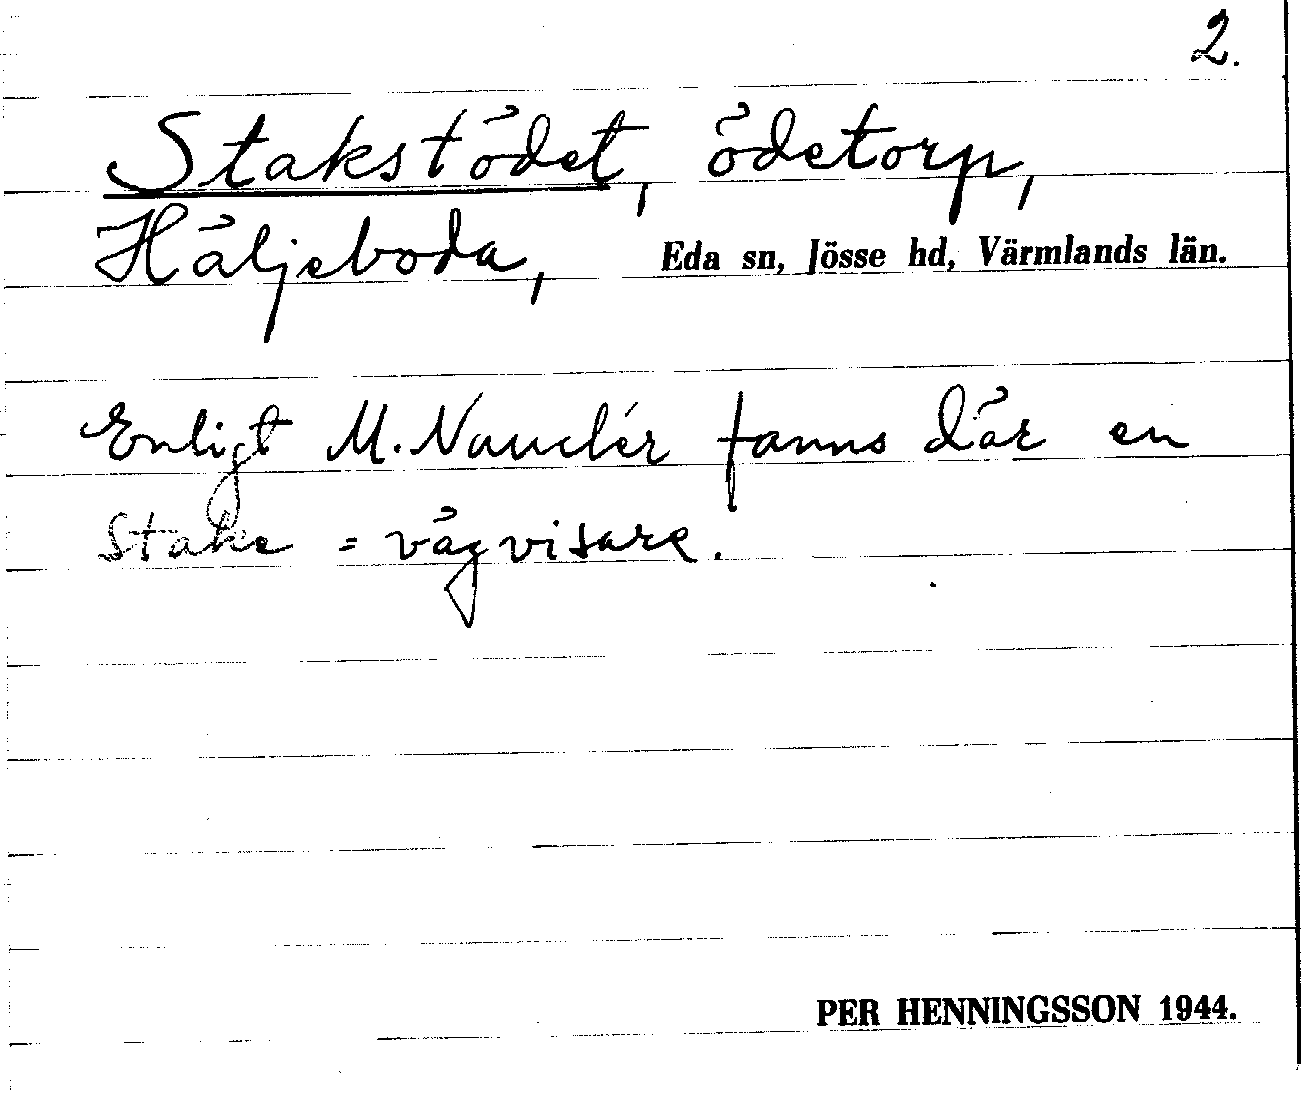 2.
Stakstödet, ödetorp,
Häljeboda, Eda sn, Jösse hd, Värmlands län.
Enligt M. Nauclér fanns där en
stake = vägvisare.
PER HENNINGSSON 1944.